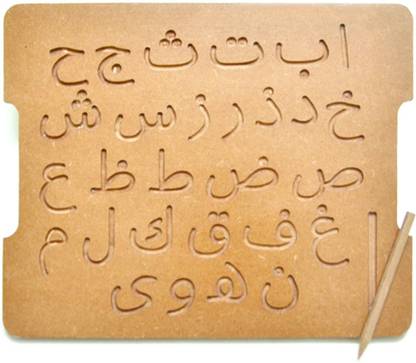 ا ب ت ث ج ح
خ د ذ ر ز س ش
ص ض ط ظ ع
غ ف ق ك ل م
ن ه و ى